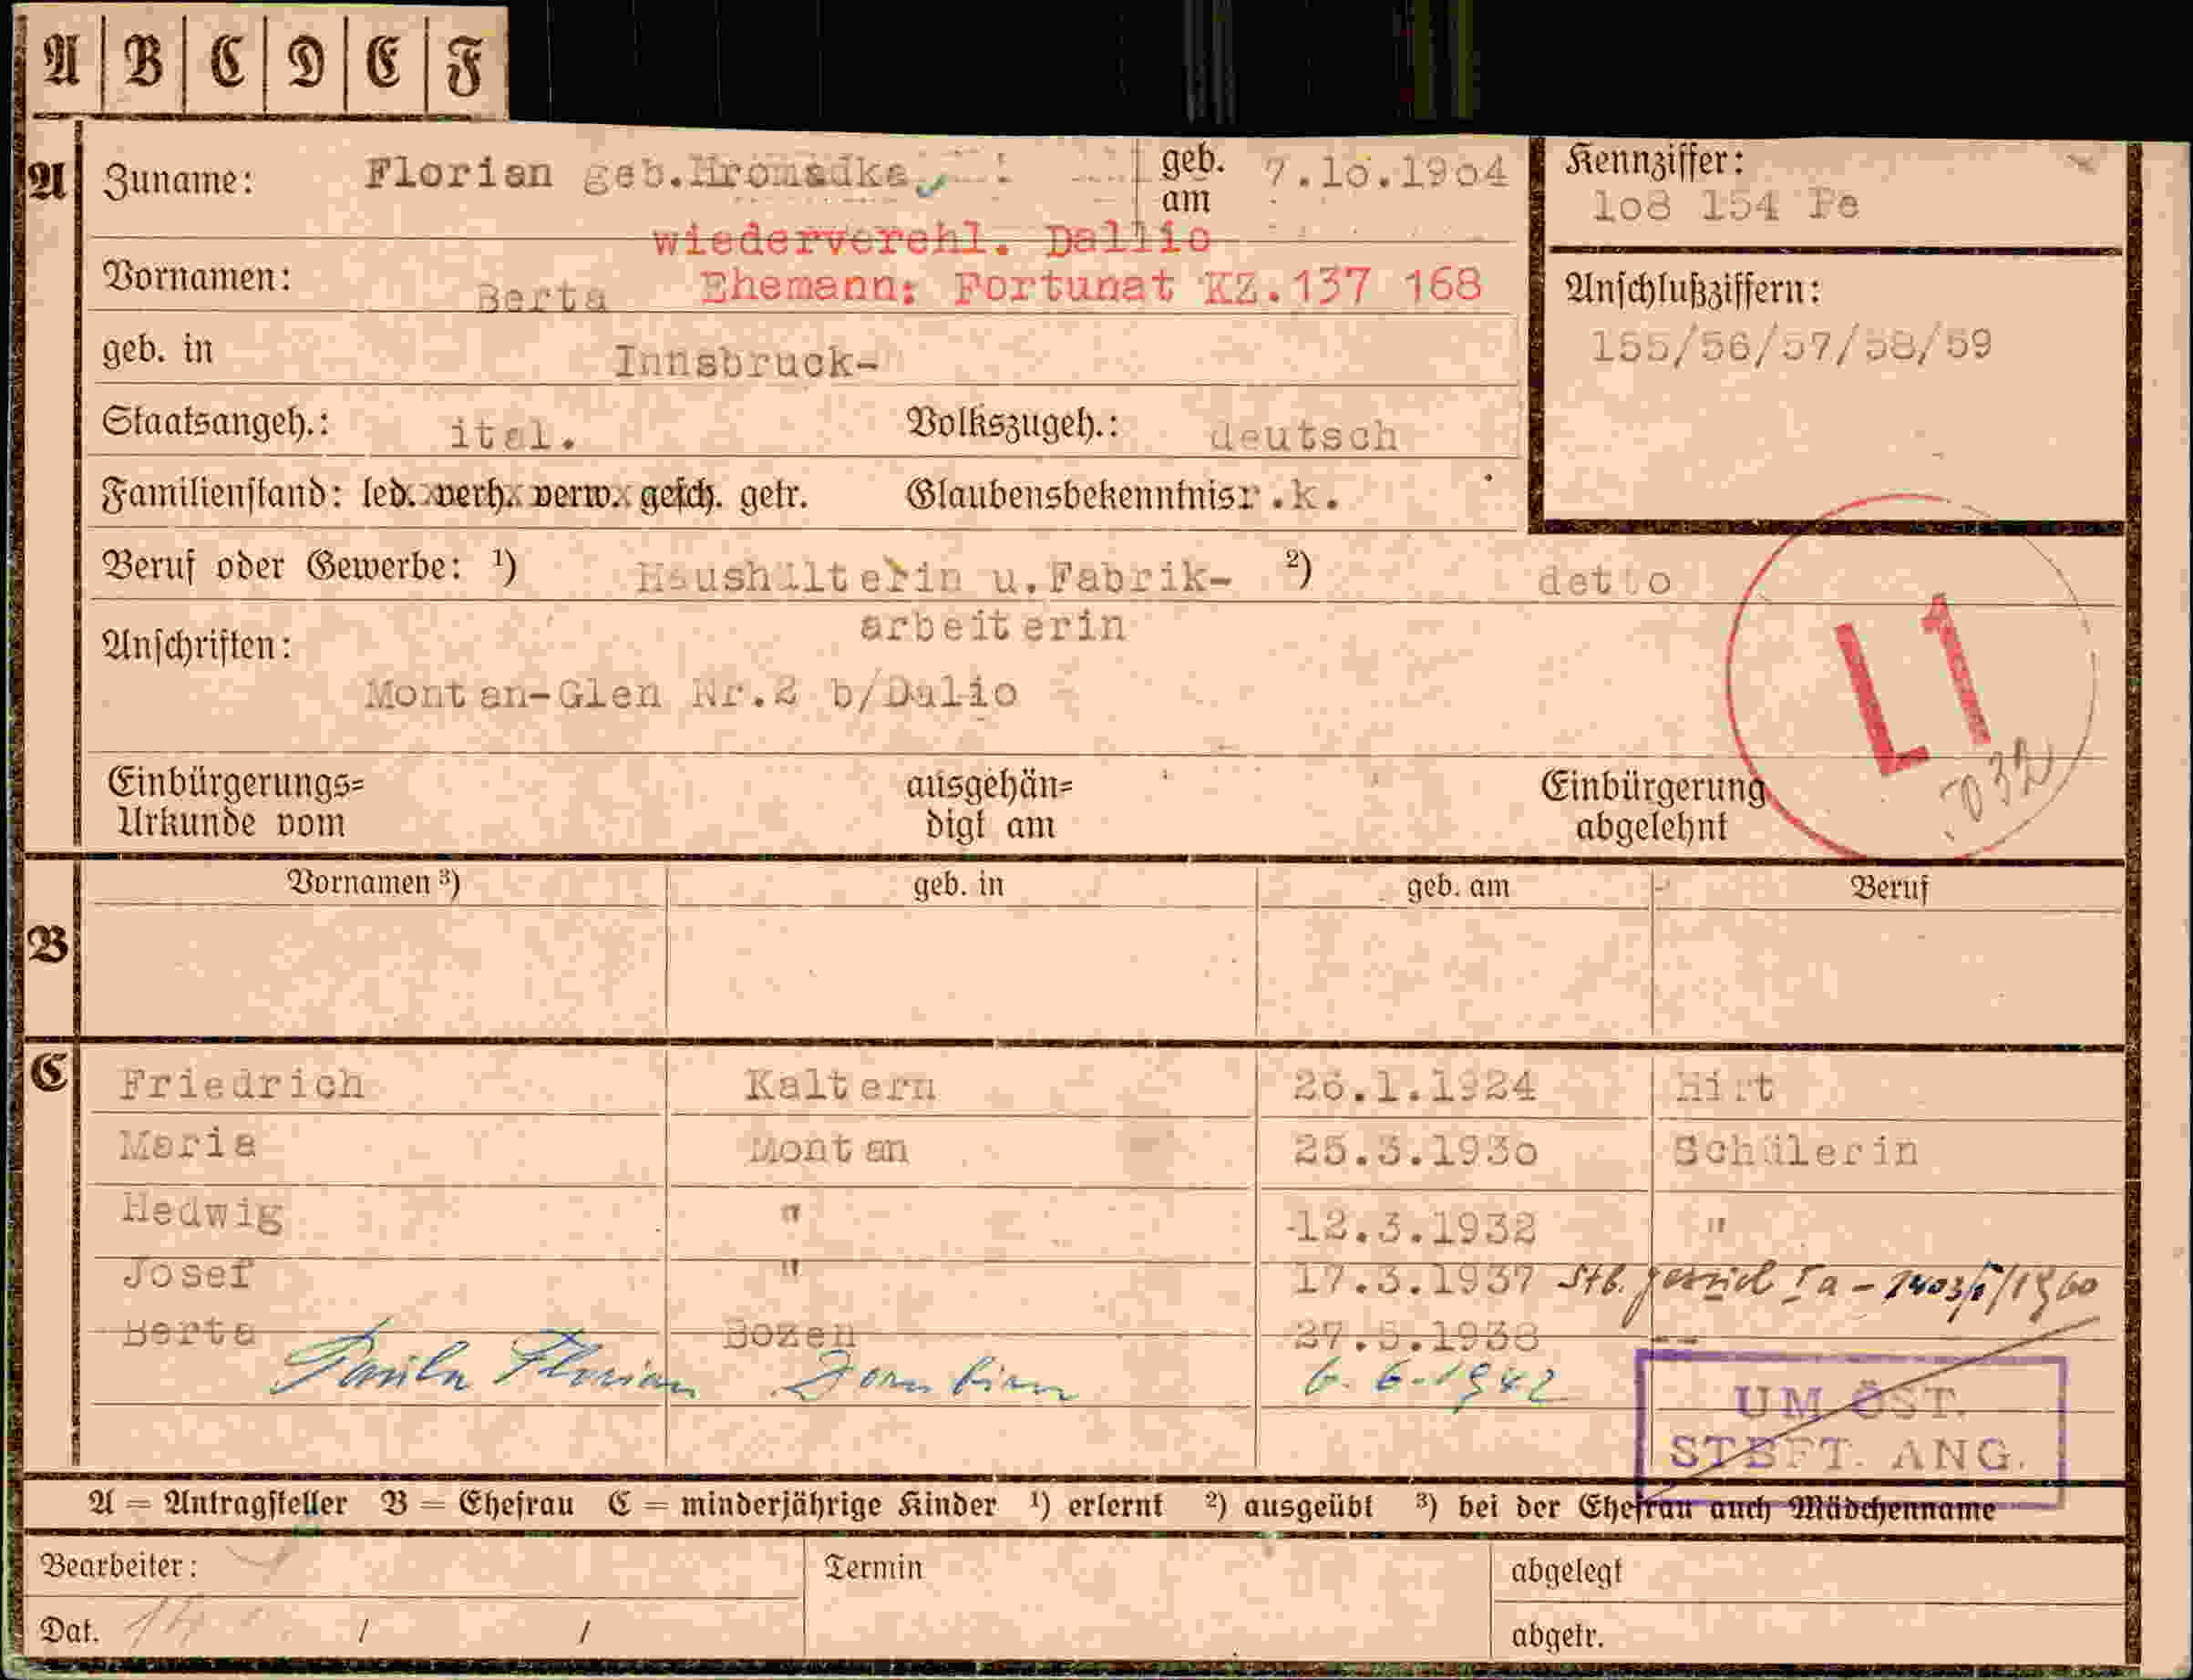 A B C D E F
A Zuname: Florian geb. Hromadka geb. am 7.10.1904 Kennziffer:
108 154 Fe
wiederverehl. Dallio
Vornamen: Berta Ehemann: Fortunat KZ.137 168 Anschlußziffern:
geb. in Innsbruck- 155/56/57/58/59
Staatsangeh.: ital. Volkszugeh.: deutsch
Familienstand: led. verh. verw. gesch. getr. Glaubensbekenntnis r.k.
Beruf oder Gewerbe: ¹) Haushälterin u.Fabrik- ²) detto
arbeiterin
Anschriften:
L1
Montan-Glen Nr.2 b/Dalio
Einbürgerungs= ausgehän= Einbürgerung
Urkunde vom digt am abgelehnt
Vornamen ³) geb. in geb. am Beruf
B
C Friedrich Kaltern 26.1.1924 Hirt
Maria Montan 25.3.1930 Schülerin
Hedwig " 12.3.1932 "
Josef " 17.3.1937 Stb.
Berta Bozen 1938 --
Paula Florian Dornbirn 6.6.1942
UM ÖST.
STBFT. ANG.
A = Antragsteller B = Ehefrau C = minderjährige Kinder ¹) erlernt ²) ausgeübt ³) bei der Ehefrau auch Mädchenname
Bearbeiter: Termin abgelegt
Dat. / / abgetr.